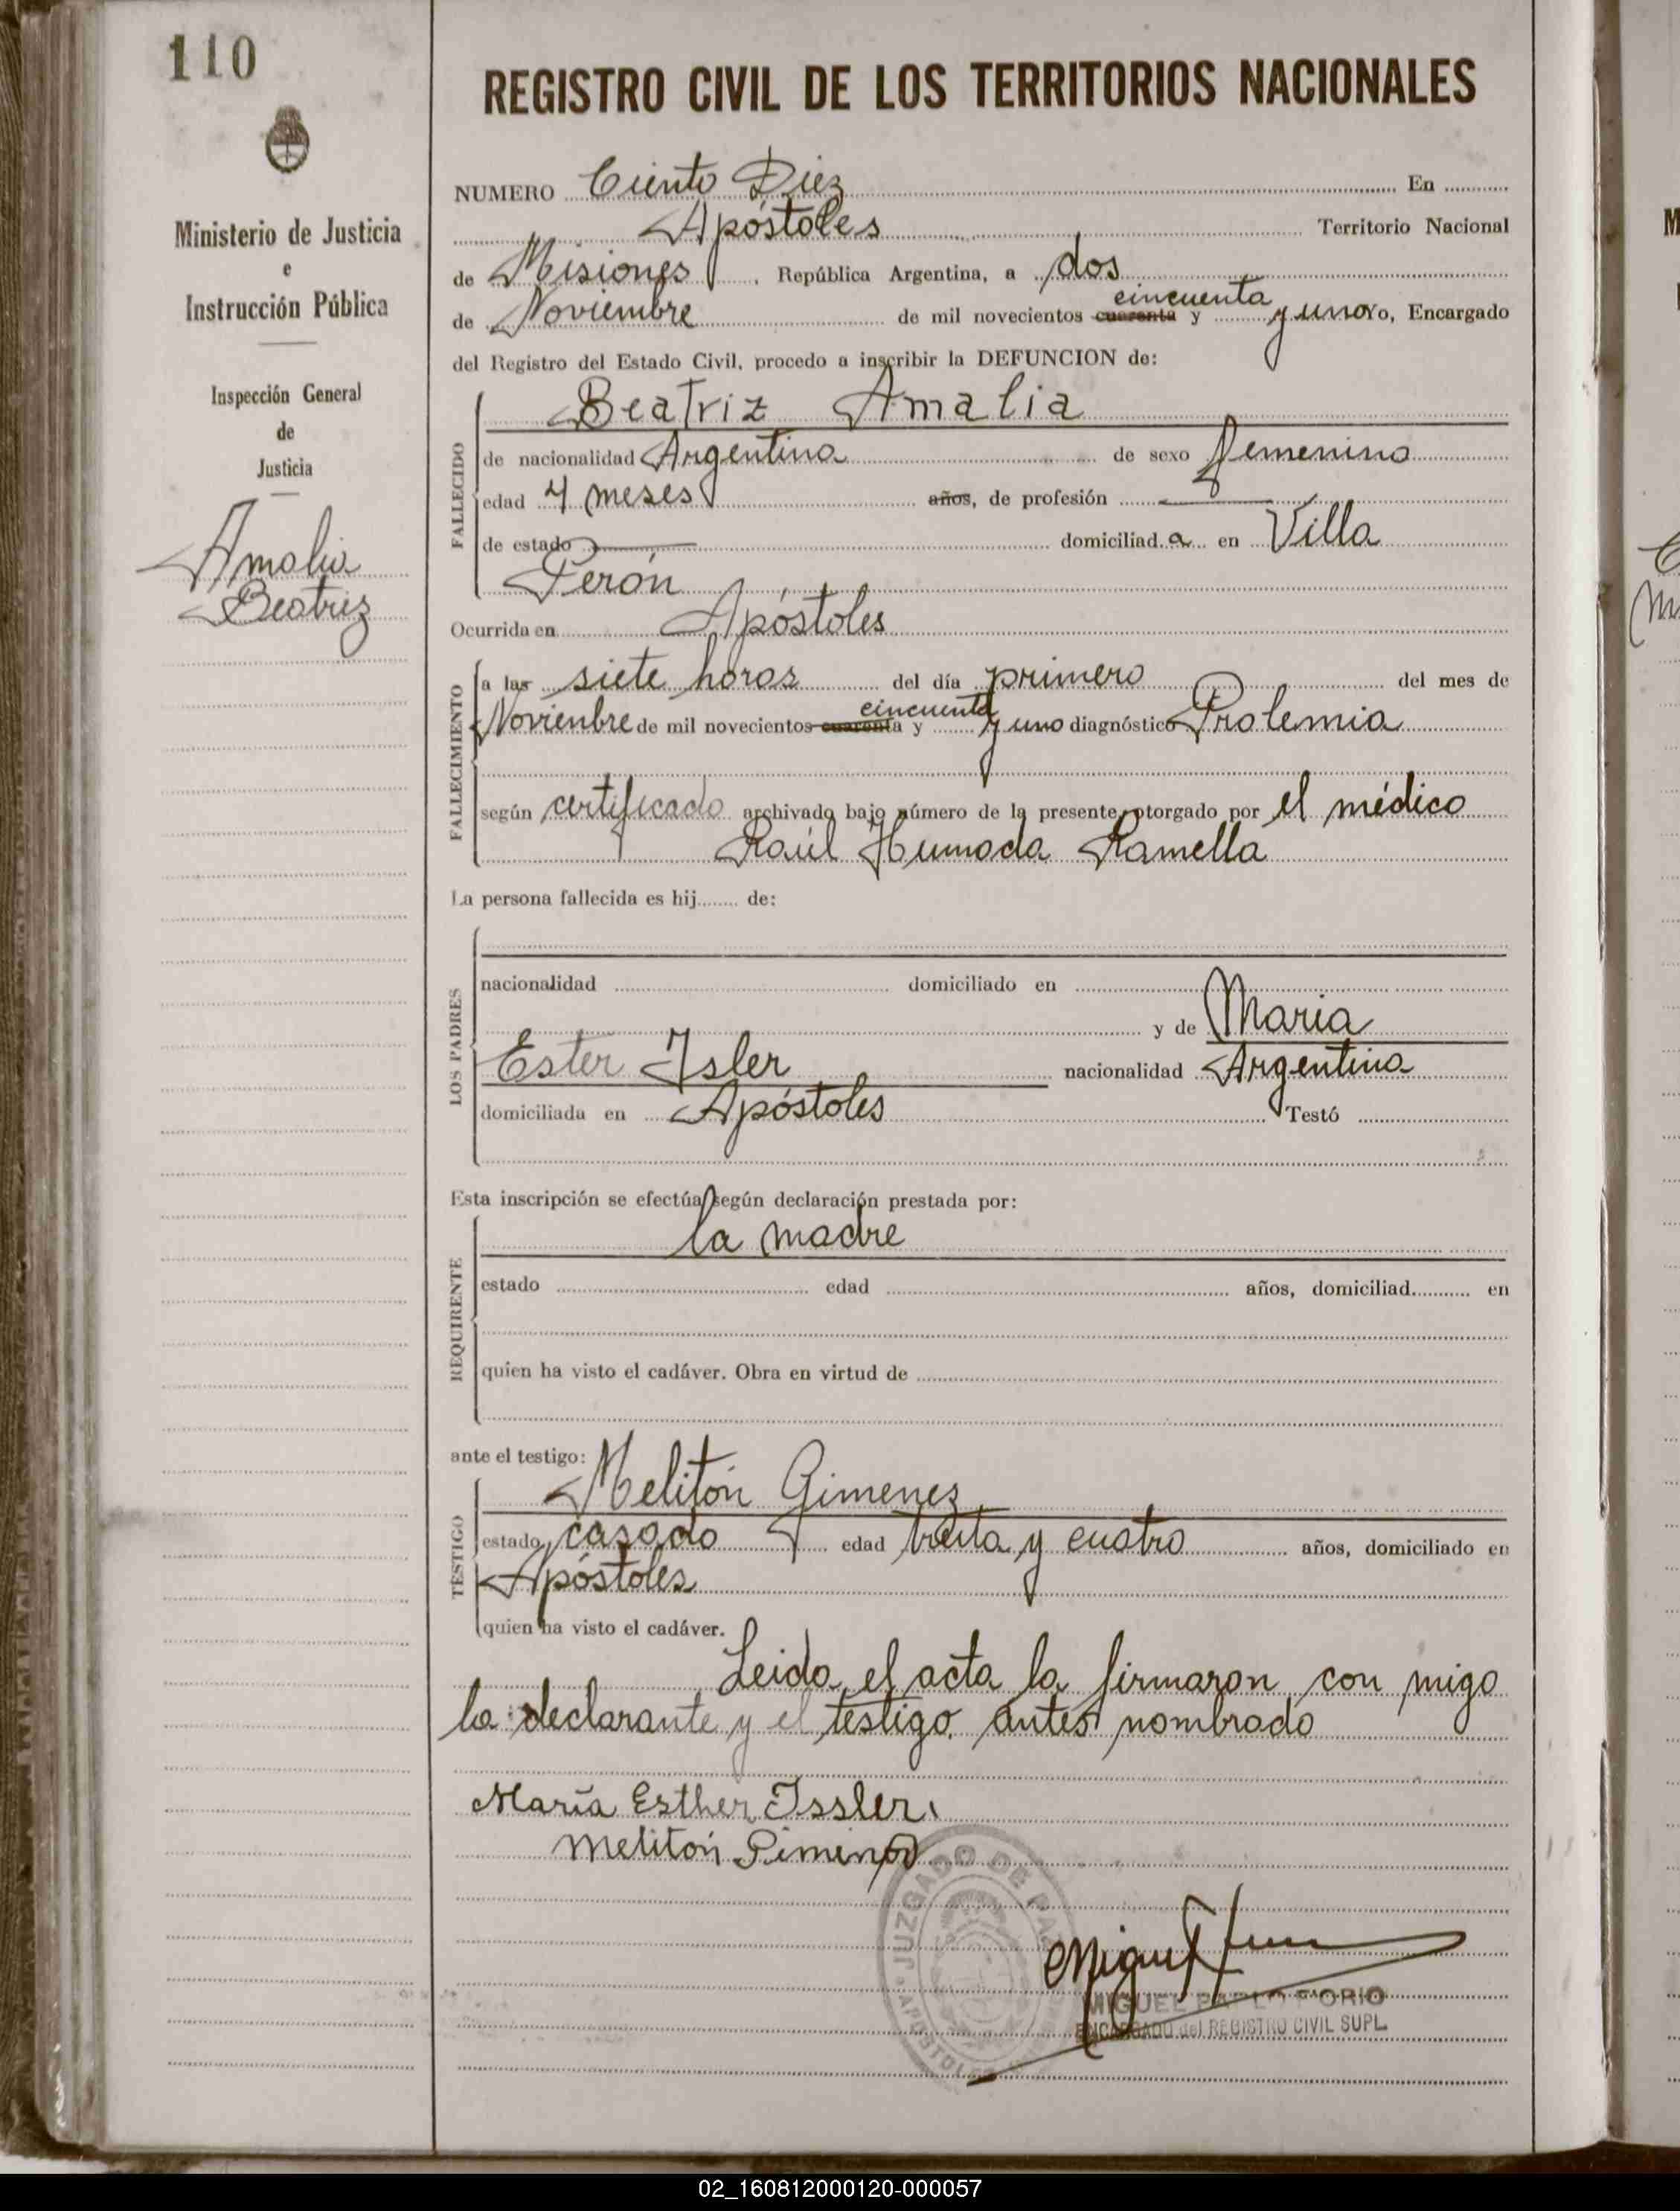 110
Ministerio de Justicia
e
Instrucción Pública
Inspección General
de
Justicia
Amalia
Beatriz
REGISTRO CIVIL DE LOS TERRITORIOS NACIONALES
NUMERO Ciento Diez En
Apóstoles Territorio Nacional
de Misiones, República Argentina, a dos
cincuenta
de Noviembre de mil novecientos cuarenta y y uno Yo, Encargado
del Registro del Estado Civil, procedo a inscribir la DEFUNCION de:
FALLECIDO
Beatriz Amalia
de nacionalidad Argentina de sexo femenino
edad 4 meses años, de profesión
de estado domiciliada en Villa
Perón
Ocurrida en Apóstoles
FALLECIMIENTO
a las siete horas del día primero del mes de
cincuenta
Novienbre de mil novecientos cuarenta y y uno diagnóstico
según certificado archivado bajo número de la presente, otorgado por el médico
Raúl Humada Ramella
La persona fallecida es hij de:
LOS PADRES
nacionalidad domiciliado en
y de Maria
Ester Isler nacionalidad Argentina
domiciliada en Apóstoles Testó
Esta inscripción se efectúa según declaración prestada por:
REQUIRENTE
la madre
estado edad años, domiciliad en
quien ha visto el cadáver. Obra en virtud de
ante el testigo:
TESTIGO
Melitón Gimenez
estado casado edad treita y cuatro años, domiciliado en
Apóstoles
quien ha visto el cadáver.
Leida el acta la firmaron con migo
la declarante y el testigo antes nombrado
María Esther Issler
Melitón
JUZGADO DE PAZ
APOSTOLES
Miguel
MIGUEL PABLO F'ORIO
ENCARGADO del REGISTRO CIVIL SUPL.
02_160812000120-000057